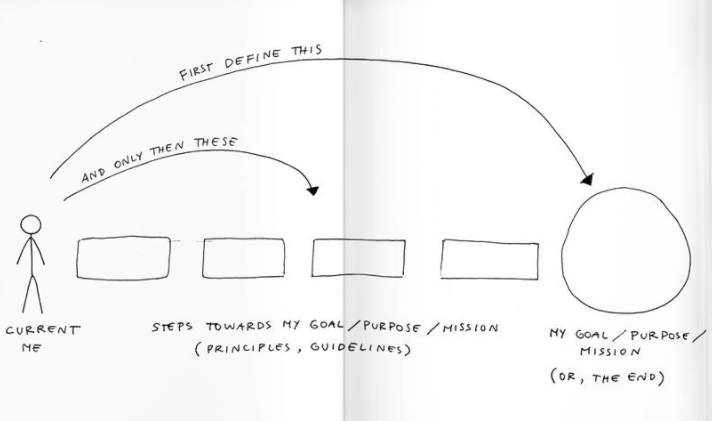 FIRST DEFINE THIS
AND ONLY THEN THESE
CURRENT
ME
STEPS TOWARDS MY GOAL/PURPOSE/MISSION
(PRINCIPLES, GUIDELINES)
MY GOAL/PURPOSE/
MISSION
(OR, THE END)